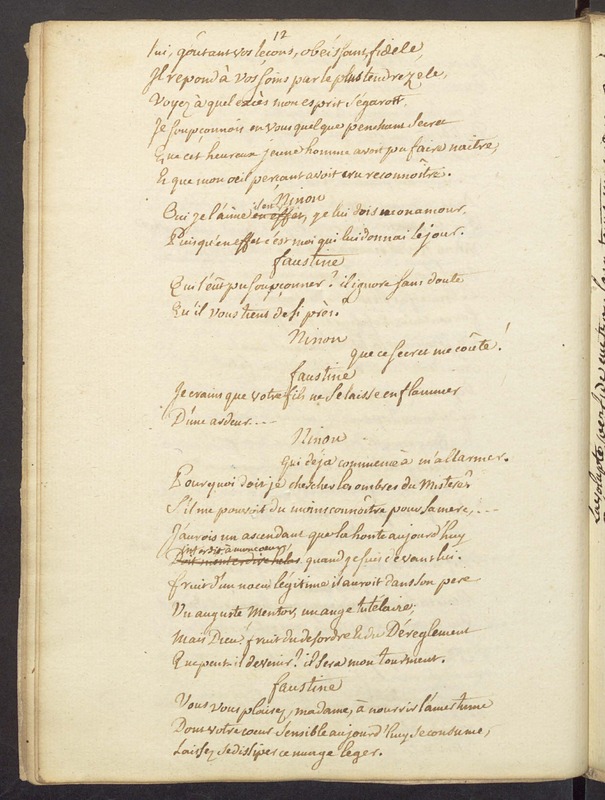 12
lui, goûtant vos leçons, obéissant, fidele,
Il repond à vos soins par le plus tendre zele,
Voyez à quel excès mon esprit s'égaroit.
Je soupçonnois en vous quelque penchant secret
Que cet heureux jeune homme avoit pu faire naitre,
Et que mon oeil perçant avoit cru reconnôitre.
Ninon
Oui je l'aime en effet, je lui dois mon amour,
Puisqu'en effet c'est moi qui lui donnai le jour.
faustine
Qui l'eût pu soupçonner? il ignore sans doute
Qu'il vous tient de si près?
Ninon
que ce secret me coûte!
faustine
Je crains que votre fils ne se laisse enflammer
D'une ardeur....
Ninon
qui déja commence à m'allarmer.
Pourquoi dois-je chercher les ombres du Mistere?
S'il me pouvoit du moins connôitre pour sa mere, ...
J'aurois un ascendant que la honte aujourd'huy
interdit à mon coeur
quand je suis devant lui.
fruit d'un noeud légitime il auroit dans son pere
Un auguste Mentor, un ange tutélaire;
Mais Dieu! fruit du desordre & du Déreglement
Que peut-il devenir? il sera mon tourment.
faustine
Vous vous plaisez, madame, à nourrir l'amertume
Dont votre coeur sensible aujourd'huy se consume,
Laissez se dissiper ce nuage leger.